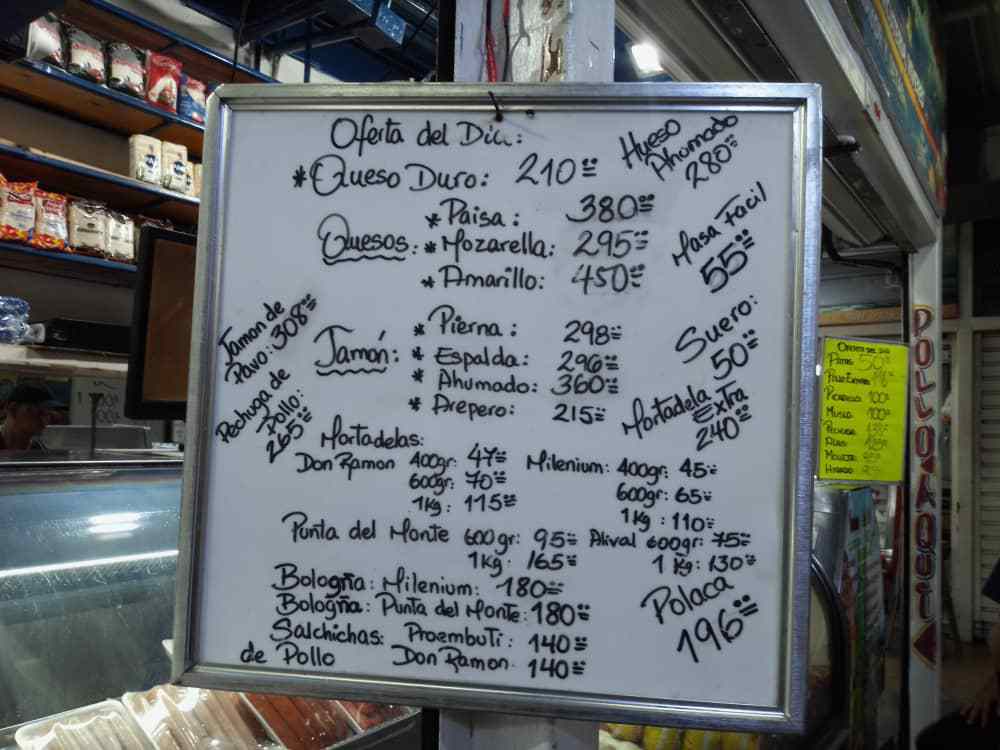 Oferta del Día:
*Queso Duro: 210=
Hueso
Ahumado
280=
*Paisa: 380=
Quesos: *Mozarella: 295=
*Amarillo: 450=
Masa Facil
55=
Jamon de
Pavo: 308=
Pechuga de
Pollo:
265=
Jamón: * Pierna: 298=
* Espalda: 296=
* Ahumado: 360=
* Arepero: 215=
Suero:
50=
Mortadela
Extra
240=
Mortadelas:
Don Ramon 400gr: 47=
600gr: 70=
1Kg: 115=
Milenium: 400gr: 45=
600gr: 65=
1Kg: 110=
Punta del Monte 600gr: 95=
1Kg: 165=
Alival 600gr: 75=
1Kg: 130=
Bologña: Milenium: 180=
Bologña: Punta del Monte: 180=
Salchichas: Proembuti: 140=
de Pollo Don Ramon: 140=
Polaca
196=
Patas 50
Picadillo 100
Muslo 100
Pechuga
Alas
Molleja
Higado
POLLO AQUI